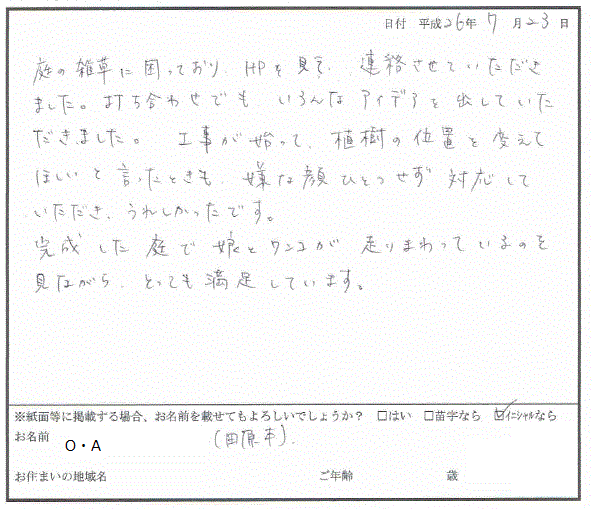 日付 平成26年7月23日
庭の雑草に困っており HPを見て、連絡させていただき
ました。打ち合わせでも いろんなアイデアを出していた
だきました。 工事が始って、植樹の位置を変えて
ほしいと言ったときも、嫌な顔ひとつせず対応して
いただき、うれしかったです。
完成した庭で娘とワンコが走りまわっているのを
見ながら、とっても満足しています。
※紙面等に掲載する場合、お名前を載せてもよろしいでしょうか? □はい □苗字なら ☑イニシャルなら
お名前 O・A (田原市).
お住まいの地域名 ご年齢 歳